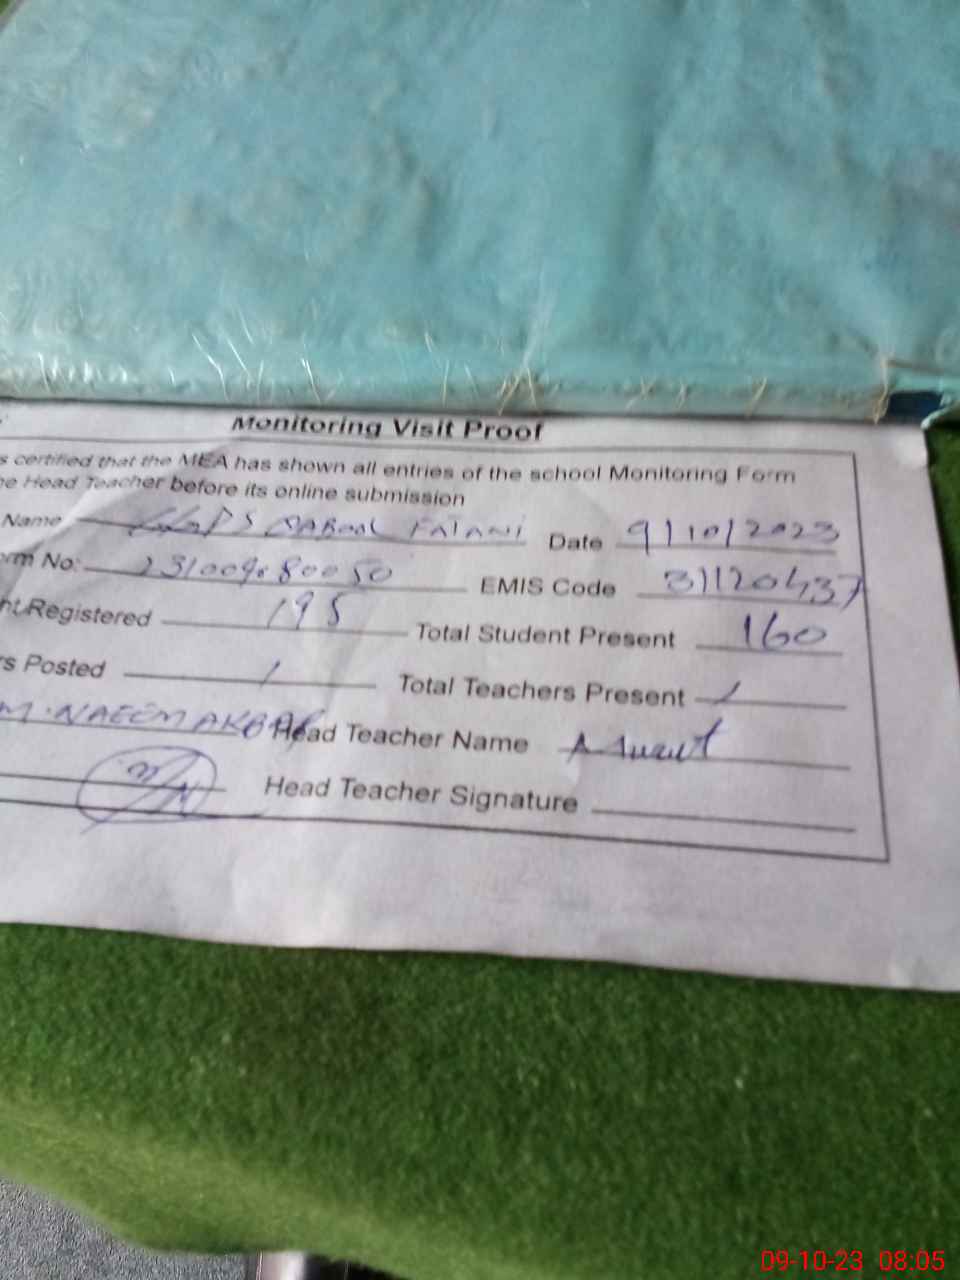 Monitoring Visit Proof
s certified that the MEA has shown all entries of the school Monitoring Form
e Head Teacher before its online submission
Name FATANI Date 9/10/2023
rm No: 231009080050 EMIS Code 31120437
nt Registered 195 Total Student Present 160
rs Posted 1 Total Teachers Present 1
M. NAEEM AKBAR Head Teacher Name
Head Teacher Signature
09-10-23 08:05